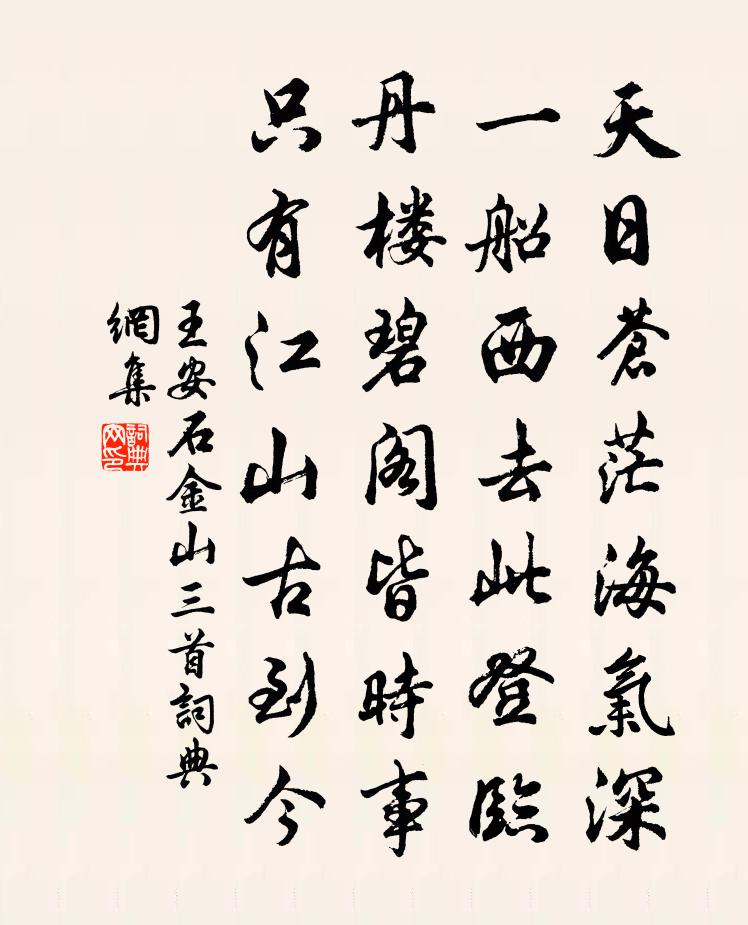 天日蒼茫海氣深
一船西去此登臨
丹楼碧阁皆時事
只有江山古到今
王安石金山三首詞典
網集
詞典
网印